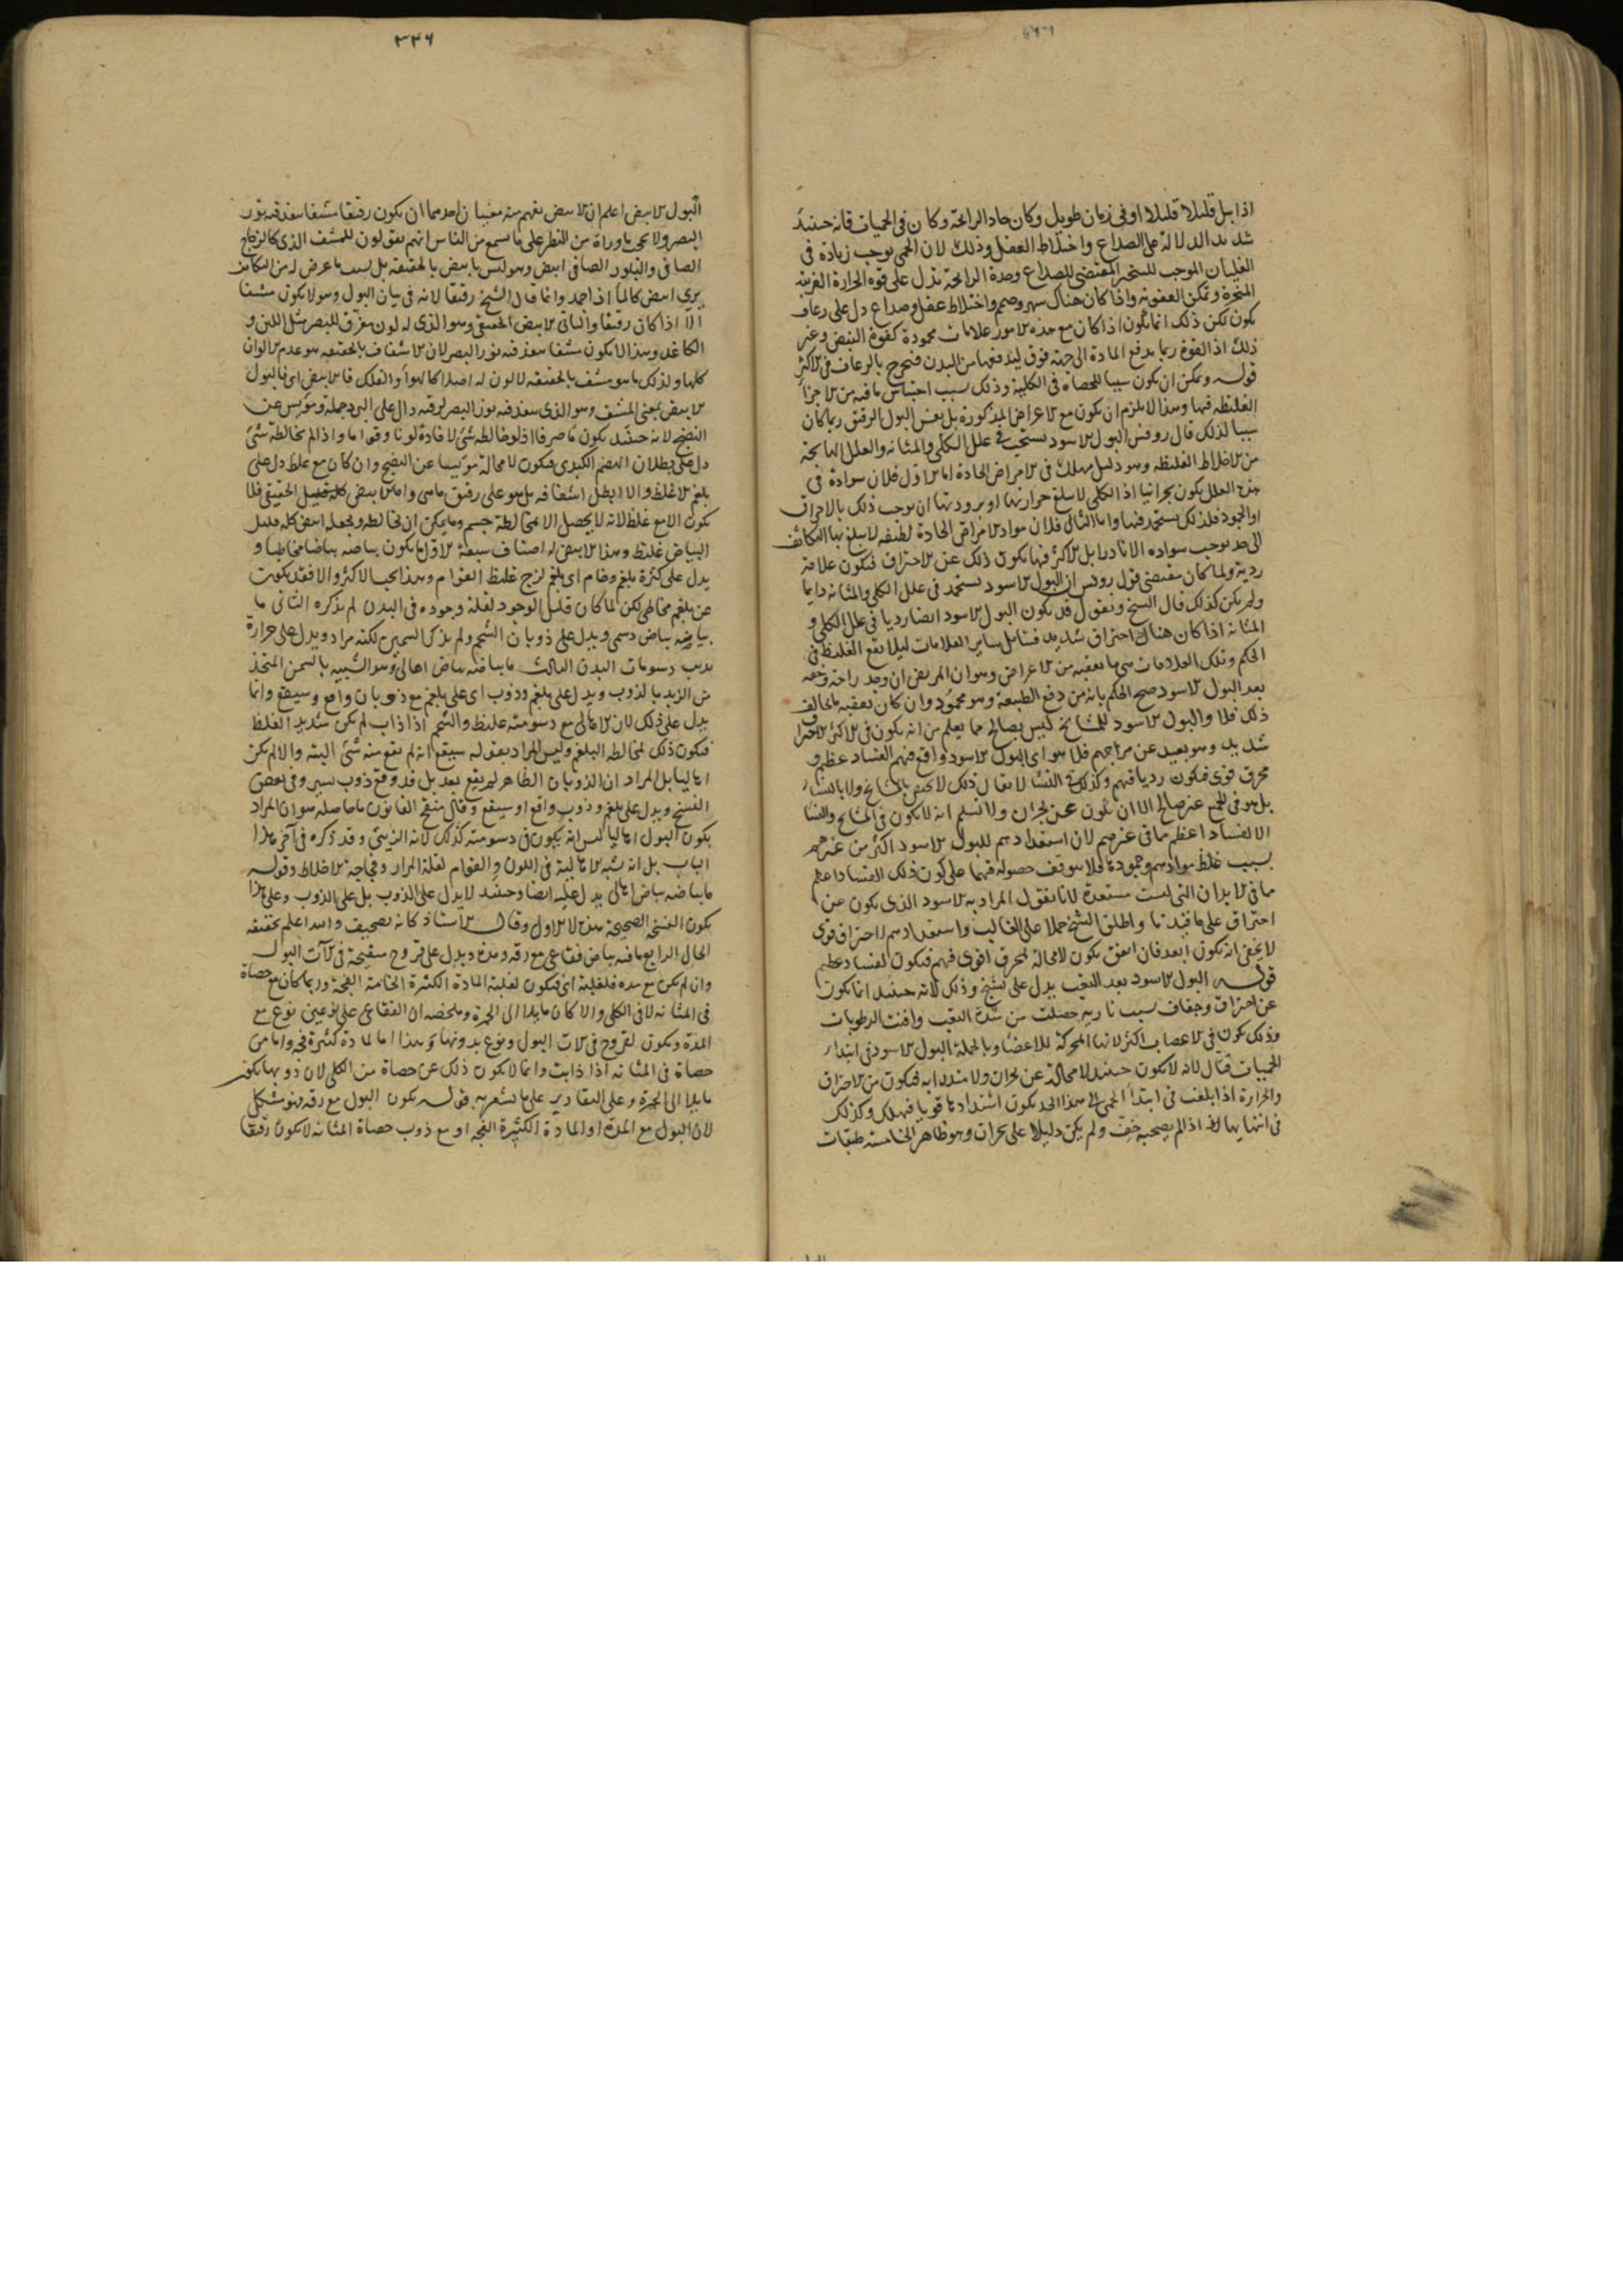 اذا بيل قليلا قليلا او فى زمان طويل وكان حاد الرائحة وكان فى الحميات فانه حينئذ
شديد الدلالة على الصداع واختلاط العقل وذلك لان الحمى توجب زيادة فى
الغليان الموجب للتبخر المقتضى للصداع وحدة الرائحة تدل على قوة الحرارة الغريبة
المبخرة وتمكن العفونة واذا كان هناك سهر وصمم واختلاط عقل وصداع دل على رعاف
يكون لكن ذلك انما يكون اذا كان مع هذه الامور علامات محمودة كقوة النبض وغير
ذلك اذ القوة ربما يدفع المادة الى جهة فوق ليدفعها من البدن فتخرج بالرعاف فى الاكثر
قوله ويمكن ان يكون سببا للحصاة فى الكلية وذلك بسبب احتباس ما فيه من الاجزا
الغليظة فيها وهذا لا يلزم ان يكون مع الاعراض المذكورة بل نفس البول الرقيق ربما كان
سببا لذلك قال روفس البول الاسود يستحب فى علل الكلى والمثانة والعلل الهائجة
من الاخلاط الغليظة وهو دليل مهلك فى الامراض الحادة اما الاول فلان سواده فى
هذه العلل يكون بحرانيا اذ الكلى لا يبلغ حرارتها او برودتها ان توجب ذلك بالاحراق
او الجمود فلذلك يستحمد فيها واما الثانى فلان مواد الامراض الحادة لطيفة لا يبلغ بها التكاثف
الى حد يوجب سواده الا نادرا بل الاكثر فيها يكون ذلك عن الاحتراق فيكون علامة
ردية ولما كان مقتضى قول روفس ان البول الاسود يستحمد فى علل الكلى والمثانة دايما
ولم يكن كذلك قال الشيخ ونقول قد يكون البول الاسود ايضا رديا فى علل الكلى و
المثانة اذا كان هناك احتراق شديد فتامل ساير العلامات ليلا يقع الغلط فى
الحكم وتلك العلامات هى ما يعقبه من الاعراض وهو ان المريض ان وجد راحة وخفة
بعد البول الاسود صح الحكم بانه من دفع الطبيعة وهو محمود وان كان يعقبه ما يخالف
ذلك فلا والبول الاسود للمشايخ ليس بصالح مما يعلم من انه يكون فى الاكثر لاحتراق
شديد وهو بعيد عن مزاجهم فلا هو اى البول الاسود واقع فيهم الفساد عظيم و
محرق قوى فيكون رديا فيهم وكذلك النسا لا يقال ذلك لا يختص بالمشايخ ولا بالنساء
بل هو فى الجميع غير صالح الا ان يكون عن بحران ولا نسلم انه لا يكون فى المشايخ والنسا
الا لفساد اعظم مما فى غيرهم لان استعدادهم للبول الاسود اكثر من غيرهم
بسبب غلظ موادهم وجمودها فلا يتوقف حصوله فيهما على كون ذلك الفساد اعظم
مما فى الابدان التى ليست مستعدة لانا نقول المراد به الاسود الذى يكون عن
احتراق على ما قيدنا واطلق الشيخ حملا على الغالب واستعدادهم لاحتراق قوى
لا يخفى انه يكون ابعد فان اتفق يكون لا محالة لمحرق اقوى فيهم فيكون لفساد عظيم
قوله البول الاسود بعد التعب يدل على تشنج وذلك لانه حينئذ انما يكون
عن احتراق وجفاف بسبب نارية حصلت من شدة التعب وافنت الرطوبات
وذلك يكون فى الاعصاب اكثر لانها المحركة للاعضا وبالجملة البول الاسود فى ابتداء
الحميات قتال لانه لا يكون حينئذ لا محالة عن بحران ولا مندابه فيكون من الاحتراق
والحرارة اذا بلغت فى ابتدا الحمى الى هذا الحد يكون اشتدادها قويا فيهلك وكذلك
فى انتهائها لانه اذا لم يصحبه خف ولم يكن دليلا على بحران وهو ظاهر الخامسة طبقات
٣٢٦
البول الابيض اعلم ان الابيض يفهم منه معنيان احدهما ان يكون رقيقا مشفا ينفذ فيه نور
البصر ولا يحجب ما وراءه من النظر على ما سمع من الناس انهم يقولون للمشف الذى كالزجاج
الصافى والبلور الصافى ابيض وهو ليس بابيض بالحقيقة بل بسبب ما عرض له من التكاثف
يرى ابيض كالماء اذا جمد وانما قال الشيخ رقيقا لانه فى بيان البول وهو لا يكون مشفا
الا اذا كان رقيقا والثانى الابيض الحقيقى وهو الذى له لون مفرق للبصر مثل اللبن و
الكاغد وهذا لا يكون مشفا ينفذ فيه نور البصر لان الاشفاف بالحقيقة هو عدم الالوان
كلها ولذلك ما هو مشف بالحقيقة لا لون له اصلا كالهواء والفلك فالابيض اى فالبول
الابيض بمعنى المشف وهو الذى ينفذ فيه نور البصر لرقته دال على البرد جملة ومويس عن
النضج لانه حينئذ يكون ما صرفا اذ لو خالطه شئ لافاده لونا وقواما واذا لم يخالطه شئ
دل على بطلان الهضم الكبدى فيكون لا محالة مويسا عن النضج وان كان مع غلظ دل على
بلغم الاغلظ والا ابطل اشفافه بل هو على رقيق مائى واما الابيض الحقيقى فلا
يكون الا مع غلظ لانه لا يحصل الا بمخالطة جسم وما يمكن ان يخالطه ويجعل ابيض كله قليل
البياض غليظ وهذا الابيض له اصناف سبعة الاول ما يكون بياضه بياضا مخاطيا و
يدل على كثرة بلغم وخام اى بلغم لزج غليظ القوام وهذا بحسب الاكثر والا فقد يكون
عن بلغم مخاطى لكن لما كان قليل الوجود لقلة وجوده فى البدن لم يذكره الثانى ما
بياضه بياض دسمى ويدل على ذوبان الشحم ولم يذكر السمين لكنه مراد ويدل على حرارة
يذيب دسومات البدن الثالث ما بياضه بياض اهالى وهو الشبيه بالسمن المتخذ
من الزبد بالذوب ويدل على بلغم وذوب اى على بلغم مع ذوبان واقع وسيقع وانما
يدل على ذلك لان الاهالى مع دسومته غليظ والشحم اذا ذاب لم يكن شديد الغلظ
فيكون ذلك لمخالطة البلغم وليس المراد بقوله سيقع انه لم يقع منه شئ البتة والا لم يكن
اهاليا بل المراد ان الذوبان الظاهر لم يقع بعد بل قد وقع ذوب يسير وفى بعض
النسخ ويدل على بلغم وذوب واقع او سيقع وقال منقح القانون ما حاصله هو ان المراد
بكون البول اهاليا ليس انه يكون فى دسومته كذلك لانه الزيتى وقد ذكره فى آخر هذا
الباب بل انه شبه الاهالية فى اللون والقوام لقلة المرار وفجاجة الاخلاط وقوله
ما بياضه بياض اهالى يدل عليه ايضا وحينئذ لا يدل على الذوب بل على الذوب وعلى هذا
يكون النسخة الصحيحة هذه لا الاول وقال الاستاذ كانه تصحيف والله اعلم بحقيقة
الحال الرابع ما فيه بياض فقاعى مع رقة ومدة ويدل على قروح متقيحة فى آلات البول
وان لم يكن مع مدة فلغلبة اى فيكون لغلبة المادة الكثيرة الخامية الفجة وربما كان مع حصاة
فى المثانة لا فى الكلى والا كان مايلا الى الحمرة وملخصه ان الفقاعى على نوعين نوع مع
المدة ويكون لقروح فى آلات البول ونوع بدونها وهذا اما لمادة كثيرة فجة واما من
حصاة فى المثانة اذا ذابت وانما لا يكون ذلك عن حصاة من الكلى لان ذوبها يكون
مايلا الى الحمرة وعلى التقادير على ما يشعر به قوله يكون البول مع رقة فهو مشكل
لان البول مع المدة او المادة الكثيرة الفجة او مع ذوب حصاة المثانة لا يكون رقيقا